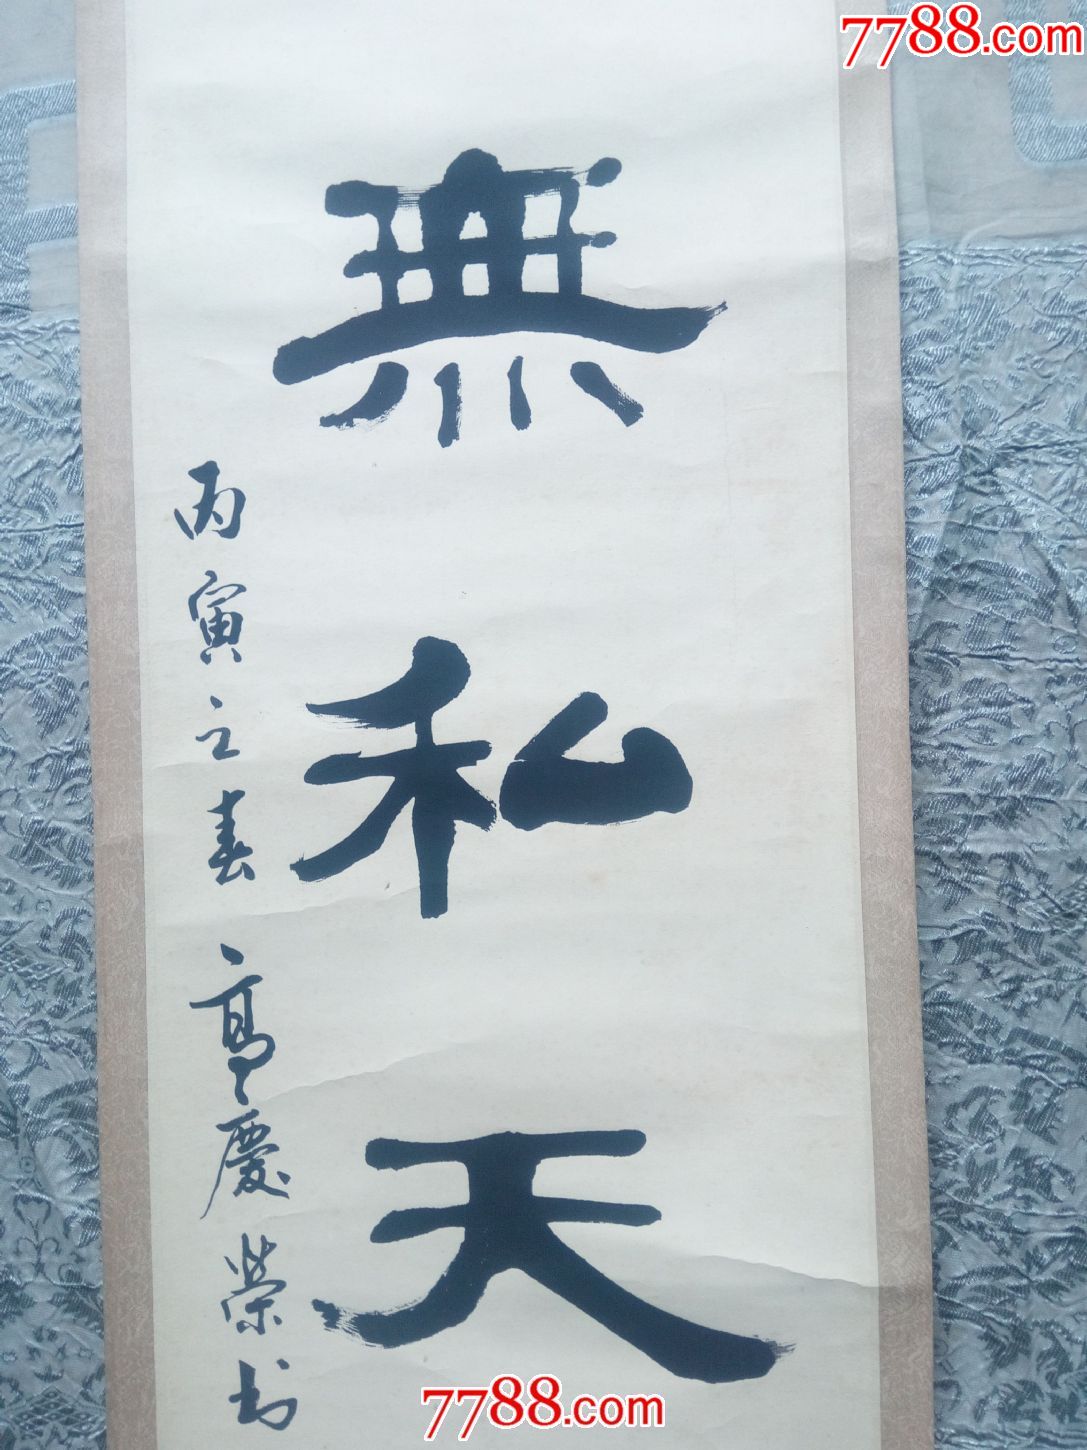 7788.com
無私天
丙寅之春 高慶榮书
7788.com